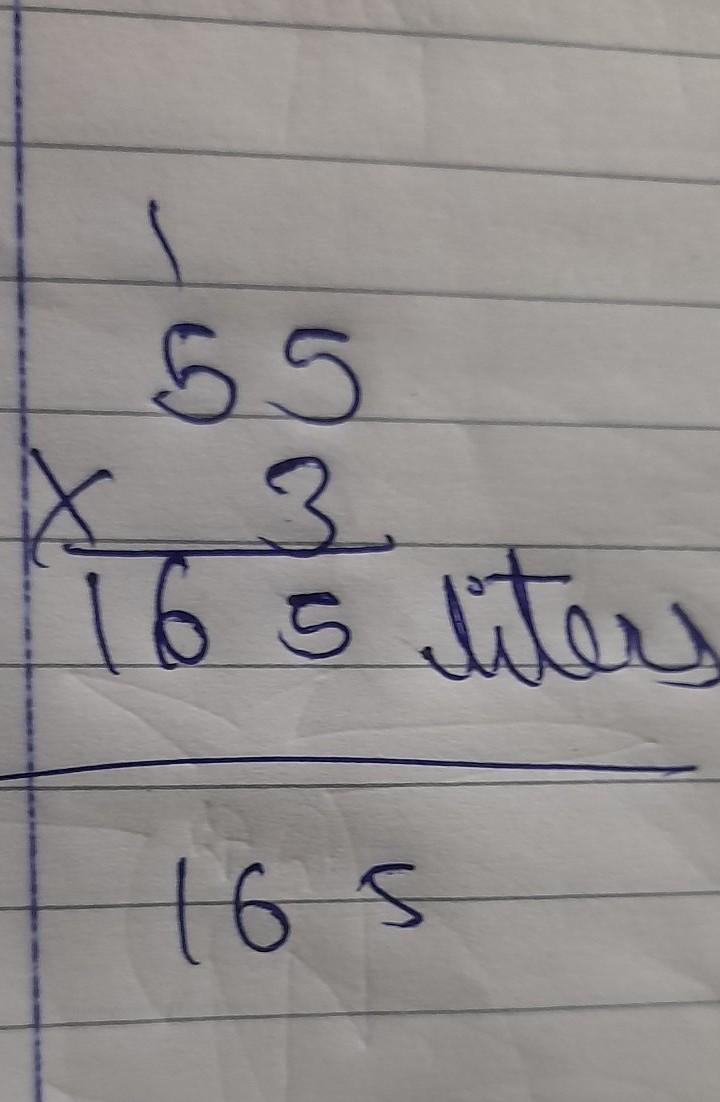 1
55
× 3
165 liters
165